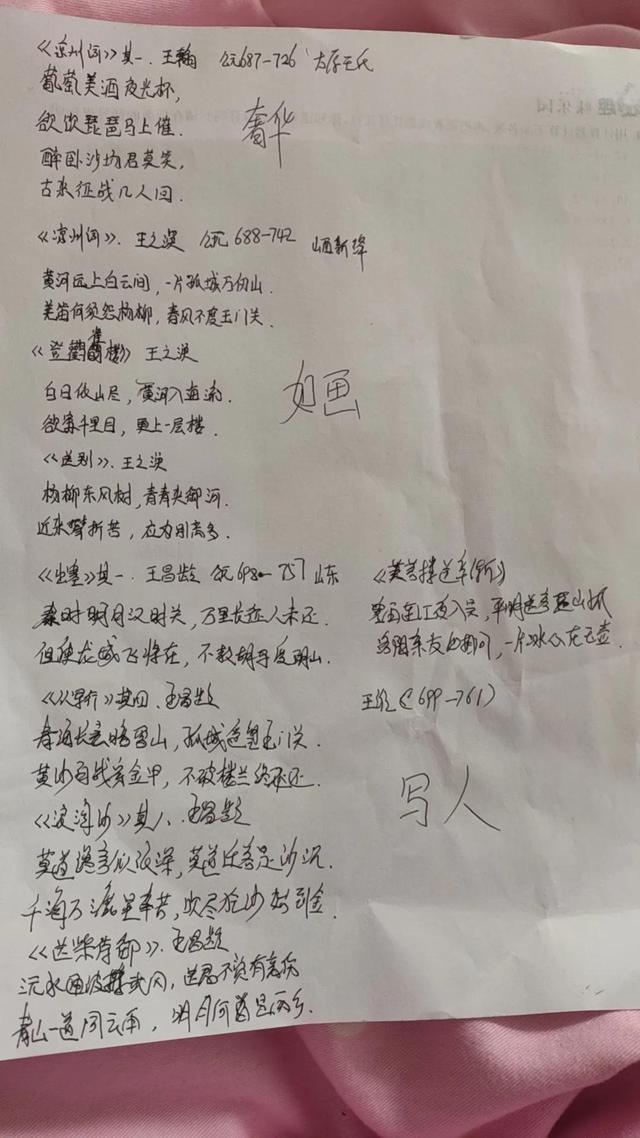 《凉州词》其一. 王翰 公元687-726 太原王氏
葡萄美酒夜光杯,
欲饮琵琶马上催.
奢华
醉卧沙场君莫笑,
古来征战几人回.
《凉州词》. 王之涣 公元 688-742 山西新绛
黄河远上白云间, 一片孤城万仞山.
羌笛何须怨杨柳, 春风不度玉门关.
《登鹳雀楼》 王之涣
白日依山尽, 黄河入海流.
如画
欲穷千里目, 更上一层楼.
《送别》. 王之涣
杨柳东风树, 青青夹御河.
近来攀折苦, 应为别离多.
《出塞》其一. 王昌龄 公元 698-757 山东
秦时明月汉时关, 万里长征人未还.
但使龙城飞将在, 不教胡马度阴山.
《从军行》其四. 王昌龄
青海长云暗雪山, 孤城遥望玉门关.
黄沙百战穿金甲, 不破楼兰终不还.
《浪淘沙》其八.
莫道谗言似浪深, 莫道迁客是沙沉.
千淘万漉虽辛苦, 吹尽狂沙始到金.
《送柴侍御》. 王昌龄
沅水通波接武冈, 送君不觉有离伤
青山一道同云雨, 明月何曾是两乡.
《芙蓉楼送辛(渐)》
寒雨连江夜入吴, 平明送客楚山孤
洛阳亲友如相问, 一片冰心在玉壶.
王维 ( 699-761)
写人